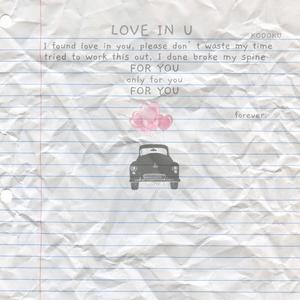 LOVE IN U
KODOKU
I found love in you, please don't waste my time
tried to work this out, I done broke my spine
FOR YOU
only for you
FOR YOU
forever.